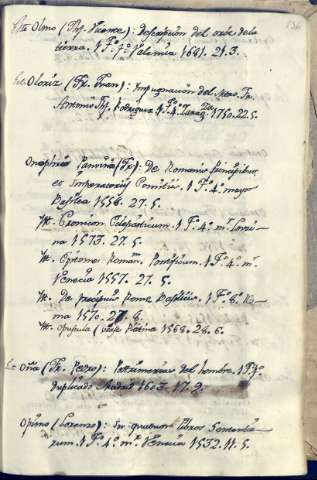 136
Olmo (Jph. Vicente): Descripcion del orbe de la
tierra. 1 Tº. fº. Valencia 1681. 21. 3.
Oloriz (Fr. Juan): Impugnacion del Mro. Fr.
Antonio Jph. Rodriguez 1 Tº. 4º. Zarag.za 1750. 22. 5.
Onophrius Panvinius (Fr): De Romanis Principibus
et Imperatoriis Comitiis. 1 Tº. 4º. mayor
Basilea 1558. 27. 5.
Yt. Cronicon Eclesiasticum. 1 Tº. 4º. mr. Lovai
na 1573. 27. 5.
Yt. Epitome Roman. Pontificum. 1 Tº. 4º. mr.
Venecia 1557. 27. 5.
Yt. De precipuis Rome Basilicis. 1 Tº. 8º. Ro
ma 1570. 27. 8.
Yt. opuscula (vease Platina 1568. 28. 6.
Oña (Fr. Pedro): Postrimerias del hombre. 1 Tº. fº.
duplicado Madrid 1603. 17. 2
Opimo (Lorenzo): In quatuor libros Sententia
rum. 1 Tº. 4º. mr. Venecia 1532. 11. 5.